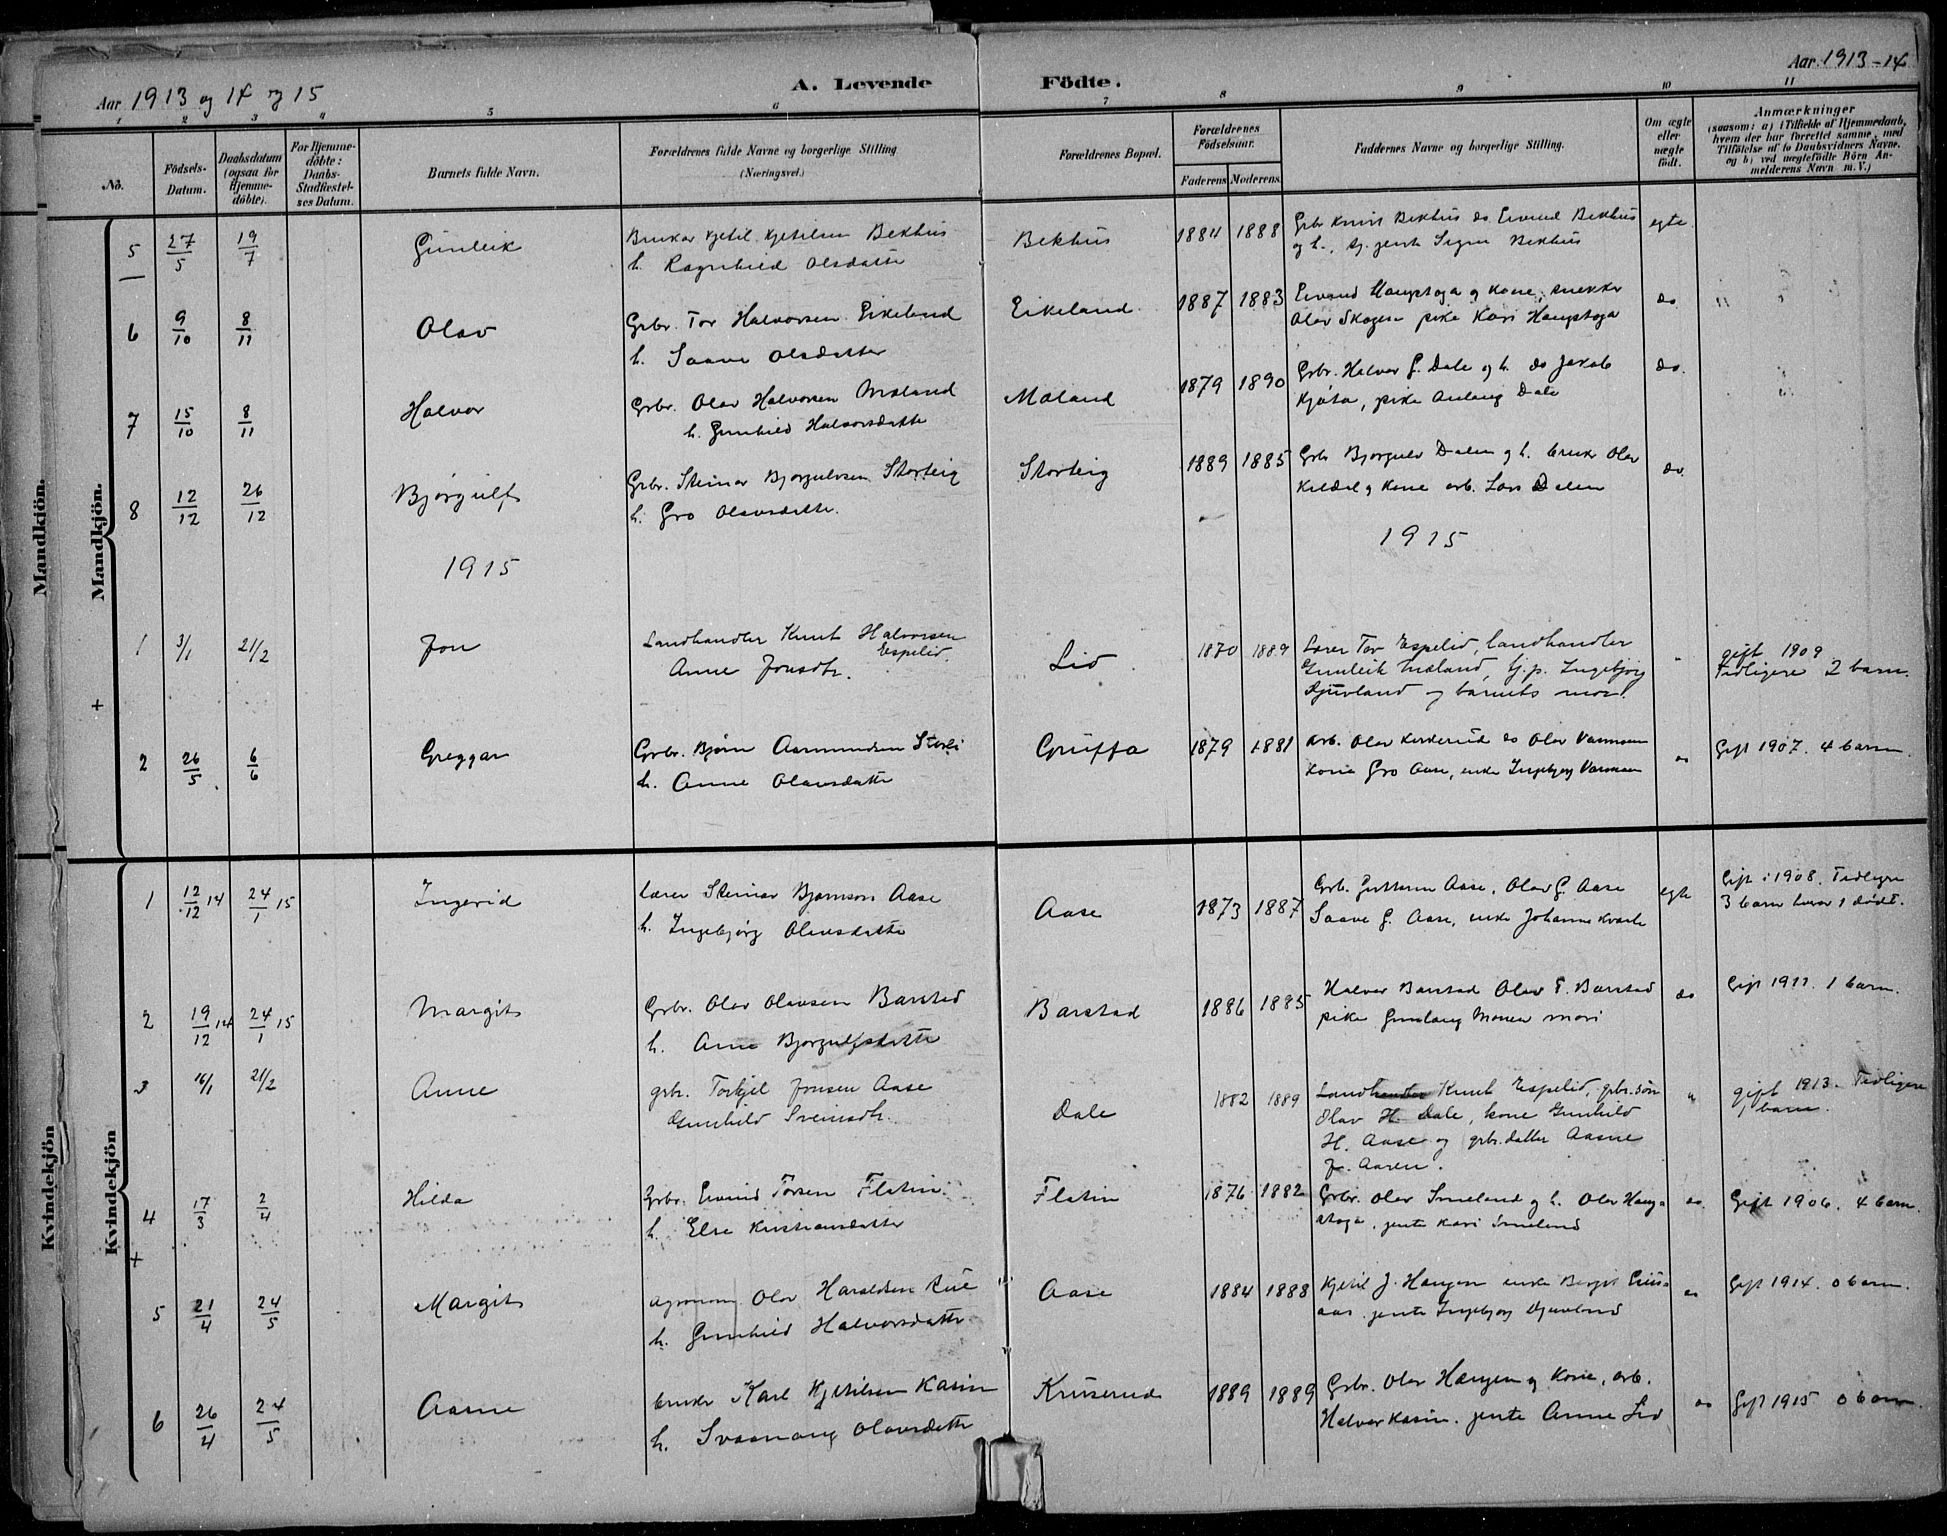 Aar 1913 og 14 og 15
A. Levende Födte.
Aar 1913-14
1 2 3 4 5 6 7 8 9 10 11
No.
Födsels-Datum.
Daabsdatum (ogsaa for Hjemme-döbte).
For Hjemme-döbte: Daabs-Stadfæstel-ses Datum.
Barnets fulde Navn.
Forældrenes fulde Navne og borgerlige Stilling
(Næringsvei.)
Forældrenes Bopæl.
Forældrenes Födselsaar.
Faderens Moderens.
Faddernes Navne og borgerlige Stilling.
Om ægte eller uægte födt.
Anmærkninger
(saasom: a) i Tilfælde af Hjemmedaab, hvem der har forrettet samme, med Tilföielse af to Daabsvidners Navne, og b) ved uægtefödte Börn An-melderens Navn m. V.)
Mandkjön.
Mandkjön.
5 27/5 19/7 Gunleik Bruker Kjetil Kjetilsen Bekhus Bekhus 1884 1888 Grbr Knut Bekhus do Eivind Bekhus egte
h. Ragnhild Olsdatter og h., tj. jente Signe Bekhus
6 9/10 8/11 Olav Grbr. Tor Halvorsen Eikeland Eikeland 1887 1883 Eivind Haugstoga og kone, snekker do "
h. Saave Olsdatter Olav Skogen pike Kari Haugstoga
7 15/10 8/11 Halvor Grbr. Olav Halvorsen Mæland Mæland 1879 1890 Grbr. Halvor G. Dale og h. do Jakob do.
h. Gunhild Halvorsdatter Kjøta, pike Anlaug Dale
8 12/12 26/12 Bjørgulf Grbr. Steinar Bjorgulvsen Storteig Storteig 1889 1885 Grbr Bjorgulv Dalen og h. bruker Olav do.
h. Gro Olavsdatter. Kildal og kone arb. Lars Dalen
1915 1915
1 3/1 21/2 Jon Landhandler Knut Halvorsen Espelid. Lid 1870 1889 Lærer Tor Espelid, landhandler " gift 1909
Anne Jonsdtr. Gunleik Mæland, tj.p. Ingebjørg Tidligere 2 barn.
Djuvland og barnets mor.
2 26/5 6/6 Greggar Grbr. Bjørn Aamundsen Storli Gruffa 1879 1881 Arb. Olav do Olav Vannson do Gift 1907. 4 barn
h. Anne Olavsdatter kone Gro Aase, enke Ingebjorg
Kvindekjön
Kvindekjön
1 12/12 14 24/1 15 Ingerid Lærer Steinar Bjornson Aase Aase 1873 1887 Grb. Guttorm Aase, Olav G. Aase egte Gift i 1908. Tidligere
h. Ingebjørg Olavsdatter Saave G. Aase, enke Johanne Kvaale 3 barn hvorav 1 dødt.
2 19/12 14 24/1 15 Margit Grbr. Olav Olavsen Barstad Barstad 1886 1885 Halvor Barstad Olav T. Barstad do Gift 1911. 1 barn.
h. Anne Bjorgulfsdatter pike Gunlaug Moen
3 16/1 21/2 Anne grbr. Torkjel Jonsen Aase Dale 1882 1889 Landhandler Knut Espelid, grbr.søn " gift 1913. Tidligere
Gunhild Sveinsdtr. Olav H. Dale, kone Gunhild 1 barn.
H. Aase og grbr.datter Aasne
J. Aasen.
4 17/3 2/4 Hilda Grbr. Eivind Torsen Flatin Flatin 1876 1882 Grbr. Olav Smeland og h. Olav Haug- do. Gift 1906. 4 barn.
h. Else Kristiansdatter stoga, jente Kari Smeland
5 21/4 24/5 Margit Agronom Olav Haraldsen Rue Aase 1884 1888 Kjetil J. Haugen enke Bergit do Gift 1914. 0 barn.
h. Gunhild Halvorsdatter jente Ingebjorg Djuvland
6 26/4 24/5 Aasne bruker Karl Kjetilsen Kasin Kruserud 1889 1889 Grbr. Olav Haugen og kone, arb. do Gift 1915 0 barn.
h. Svaanaug Olavsdatter Halvor Kasin. jente Anne Lid